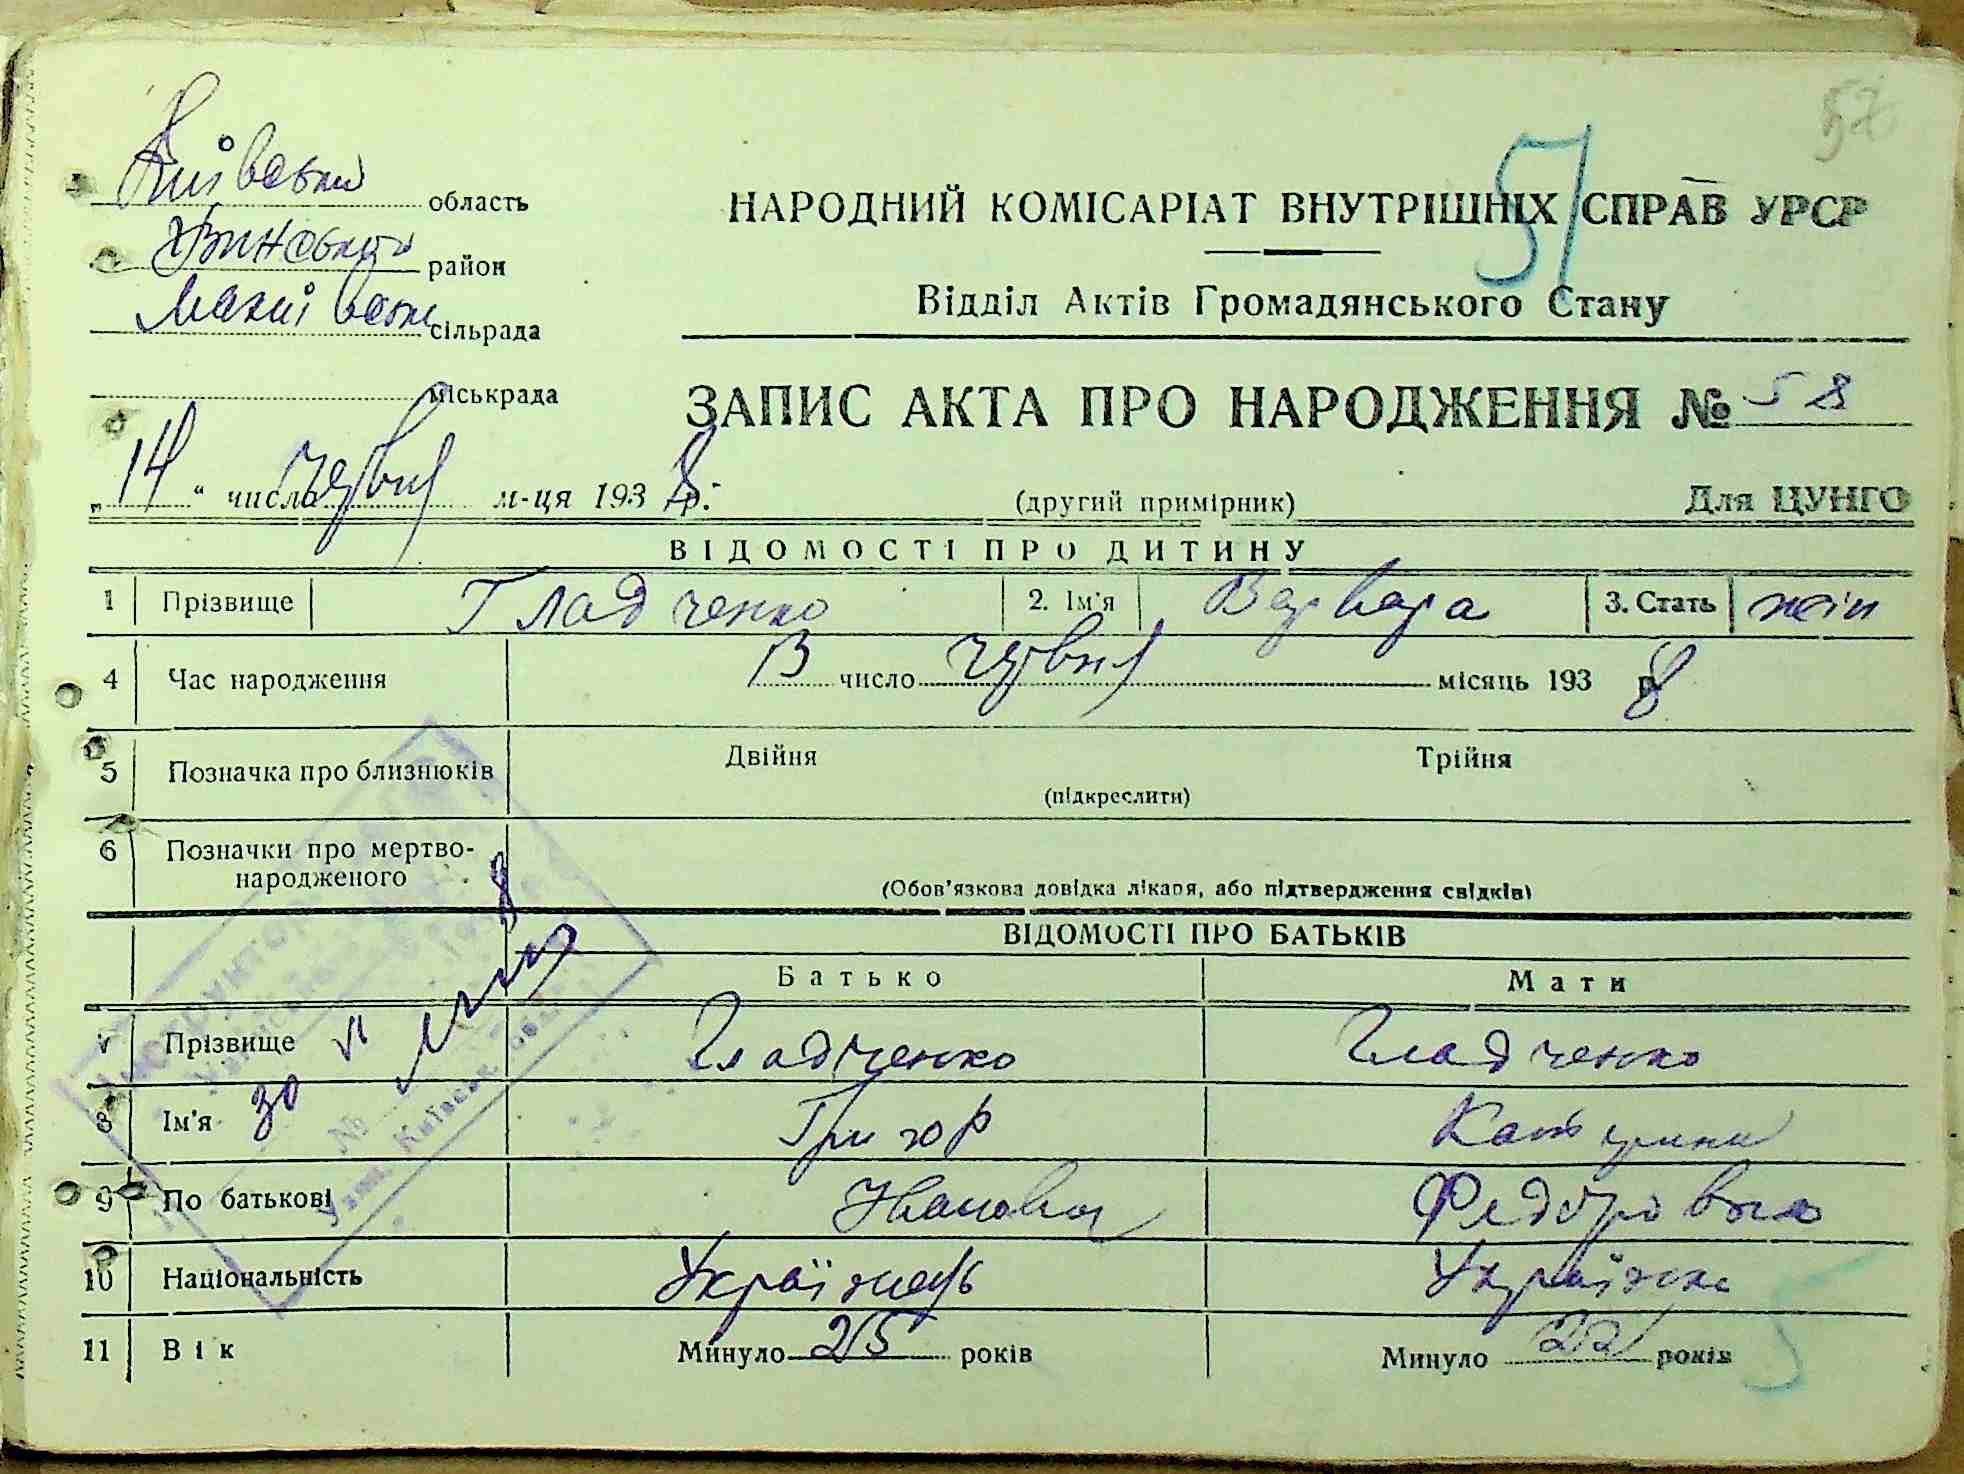 52
51
Київськ область
район
Макіївськ сільрада
міськрада
НАРОДНИЙ КОМІСАРІАТ ВНУТРІШНІХ СПРАВ УРСР
Відділ Актів Громадянського Стану
ЗАПИС АКТА ПРО НАРОДЖЕННЯ № 58
„14“ число червня м-ця 1938 р.
(другий примірник)
Для ЦУНГО
ВІДОМОСТІ ПРО ДИТИНУ
1 Прізвище Гладченко 2. Ім'я Варвара 3. Стать жін
4 Час народження 13 число червня місяць 1938 р.
5 Позначка про близнюків Двійня Трійня
(підкреслити)
6 Позначки про мертво-
народженого
(Обов'язкова довідка лікаря, або підтвердження свідків)
ВІДОМОСТІ ПРО БАТЬКІВ
Батько Мати
7 Прізвище Гладченко Гладченко
8 Ім'я Григор Катерина
9 По батькові Іванович Федоровна
10 Національність Українець Українка
11 Вік Минуло 25 років Минуло 22 років
30 VI
№
Київськ. обл.
5